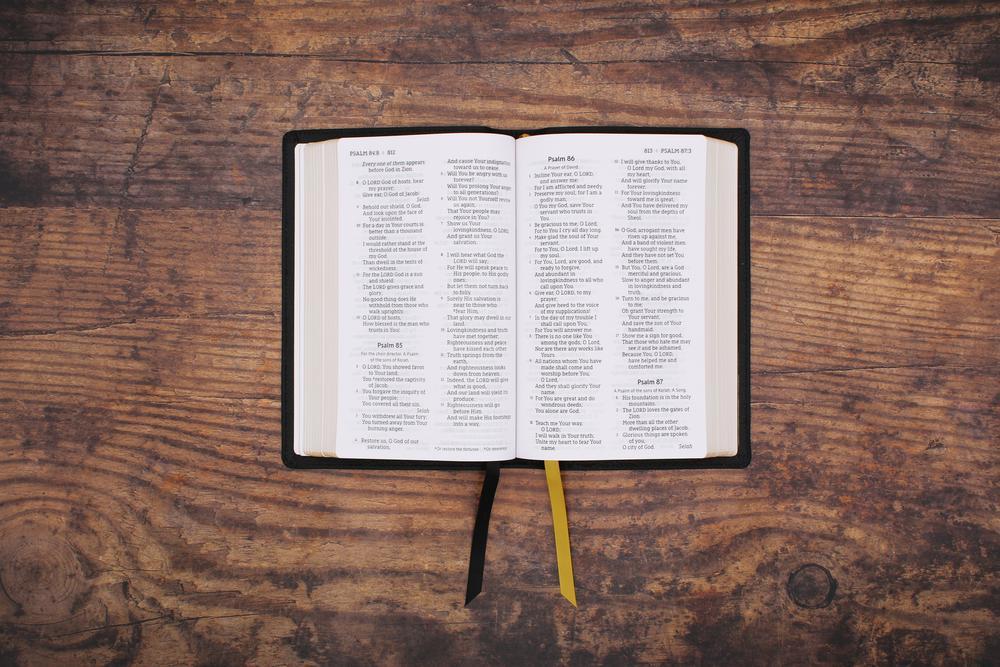 PSALM 84:8 | 812
Every one of them appears
before God in Zion.
8 O LORD God of hosts, hear
my prayer;
Give ear, O God of Jacob!
Selah
9 Behold our shield, O God,
And look upon the face of
Your anointed.
10 For a day in Your courts is
better than a thousand
outside.
I would rather stand at the
threshold of the house of
my God
Than dwell in the tents of
wickedness.
11 For the LORD God is a sun
and shield;
The LORD gives grace and
glory;
No good thing does He
withhold from those who
walk uprightly.
12 O LORD of hosts,
How blessed is the man who
trusts in You!
Psalm 85
For the choir director. A Psalm
of the sons of Korah.
1 O LORD, You showed favor
to Your land;
You *restored the captivity
of Jacob.
2 You forgave the iniquity of
Your people;
You covered all their sin.
Selah
3 You withdrew all Your fury;
You turned away from Your
burning anger.
4 Restore us, O God of our
salvation,
And cause Your indignation
toward us to cease.
5 Will You be angry with us
forever?
Will You prolong Your anger
to all generations?
6 Will You not Yourself revive
us again,
That Your people may
rejoice in You?
7 Show us Your
lovingkindness, O LORD,
And grant us Your
salvation.
8 I will hear what God the
LORD will say;
For He will speak peace to
His people, to His godly
ones;
But let them not turn back
to folly.
9 Surely His salvation is
near to those who
*fear Him,
That glory may dwell in our
land.
10 Lovingkindness and truth
have met together;
Righteousness and peace
have kissed each other.
11 Truth springs from the
earth,
And righteousness looks
down from heaven.
12 Indeed, the LORD will give
what is good,
And our land will yield its
produce.
13 Righteousness will go
before Him
And will make His footsteps
into a way.
*Or restore the fortunes *Or reverence
813 | PSALM 87:3
Psalm 86
A Prayer of David.
1 Incline Your ear, O LORD,
and answer me;
For I am afflicted and needy.
2 Preserve my soul, for I am a
godly man;
O You my God, save Your
servant who trusts in
You.
3 Be gracious to me, O Lord,
For to You I cry all day long.
4 Make glad the soul of Your
servant,
For to You, O Lord, I lift up
my soul.
5 For You, Lord, are good, and
ready to forgive,
And abundant in
lovingkindness to all who
call upon You.
6 Give ear, O LORD, to my
prayer;
And give heed to the voice
of my supplications!
7 In the day of my trouble I
shall call upon You,
For You will answer me.
8 There is no one like You
among the gods, O Lord,
Nor are there any works like
Yours.
9 All nations whom You have
made shall come and
worship before You,
O Lord,
And they shall glorify Your
name.
10 For You are great and do
wondrous deeds;
You alone are God.
11 Teach me Your way,
O LORD;
I will walk in Your truth;
Unite my heart to fear Your
name.
12 I will give thanks to You,
O Lord my God, with all
my heart,
And will glorify Your name
forever.
13 For Your lovingkindness
toward me is great,
And You have delivered my
soul from the depths of
Sheol.
14 O God, arrogant men have
risen up against me,
And a band of violent men
have sought my life,
And they have not set You
before them.
15 But You, O Lord, are a God
merciful and gracious,
Slow to anger and abundant
in lovingkindness and
truth.
16 Turn to me, and be gracious
to me;
Oh grant Your strength to
Your servant,
And save the son of Your
handmaid.
17 Show me a sign for good,
That those who hate me may
see it and be ashamed,
Because You, O LORD,
have helped me and
comforted me.
Psalm 87
A Psalm of the sons of Korah. A Song.
1 His foundation is in the holy
mountains.
2 The LORD loves the gates of
Zion
More than all the other
dwelling places of Jacob.
3 Glorious things are spoken
of you,
O city of God. Selah